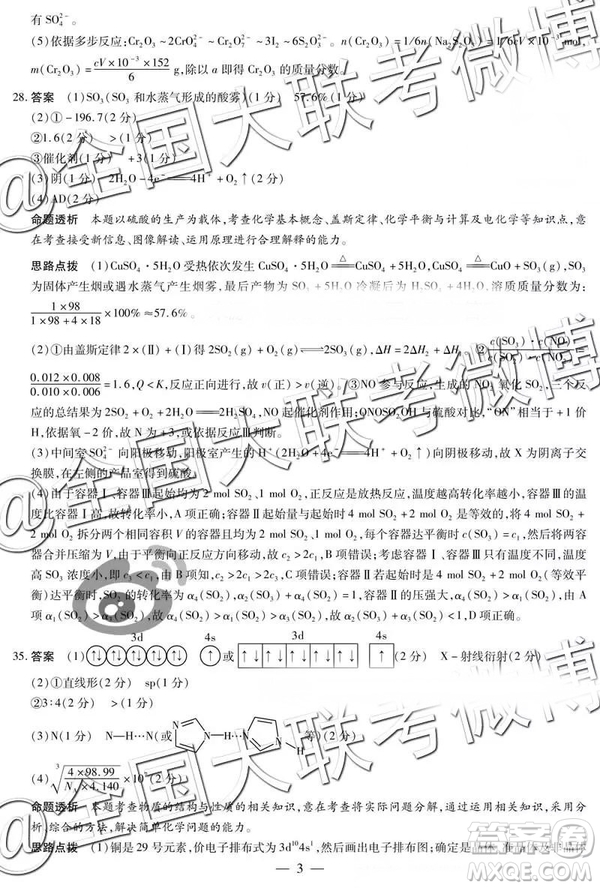 有 SO₄²⁻。
(5)依据多步反应:Cr₂O₃ ~2CrO₄²⁻ ~Cr₂O₇²⁻ ~3I₂ ~6S₂O₃²⁻。n(Cr₂O₃)=1/6n(Na₂S₂O₃)=1/6cV×10⁻³ mol,
m(Cr₂O₃)=cV×10⁻³×152/6 g,除以 a 即得 Cr₂O₃ 的质量分数。
28. 答案 (1)SO₃(SO₃ 和水蒸气形成的酸雾)(1 分) 57.6%(1 分)
(2)①-196.7(2 分)
②1.6(2 分) >(1 分)
③催化剂(1 分) +3(1 分)
(3)阴(1 分) 2H₂O-4e⁻═4H⁺+O₂↑(2 分)
(4)AD(2 分)
命题透析 本题以硫酸的生产为载体,考查化学基本概念、盖斯定律、化学平衡与计算及电化学等知识点,意
在考查接受新信息、图像解读、运用原理进行合理解释的能力。
思路点拨 (1)CuSO₄·5H₂O 受热依次发生 CuSO₄·5H₂O═(△)CuSO₄+5H₂O,CuSO₄═(△)CuO+SO₃(g),SO₃
为固体产生烟或遇水蒸气产生烟雾,最后产物为 SO₃+5H₂O 冷凝后为 H₂SO₄+4H₂O,溶质质量分数为:
1×98/(1×98+4×18)×100%=57.6%。
(2)①由盖斯定律 2×(Ⅱ)+(Ⅰ)得 2SO₂(g)+O₂(g)⇌2SO₃(g),ΔH=2ΔH₂+ΔH₁。②Q=c(SO₃)·c(NO)/c(SO₂)·c(NO₂)=
0.012×0.008/0.010×0.006=1.6,Q<K,反应正向进行,故 v(正)>v(逆)。③NO 参与反应,生成的 NO₂ 氧化 SO₂,三个反
应的总结果为 2SO₂+O₂+2H₂O═2H₂SO₄,NO 起催化剂作用;ONOSO₂OH 与硫酸对比,“ON”相当于+1 价
H,依据氧-2 价,故 N 为+3,或依据Ⅲ判断。
(3)中间室 SO₄²⁻ 向阳极移动,阳极室产生的 H⁺(2H₂O-4e⁻═4H⁺+O₂↑)向阴极移动,故 X 为阴离子交
换膜,在左侧的产品室得到硫酸。
(4)由于容器Ⅰ、容器Ⅲ起始均为 2 mol SO₂、1 mol O₂,正反应是放热反应,温度越高转化率越小,容器Ⅲ的温
度比容器Ⅰ高,故转化率小,A 项正确;容器Ⅱ起始量与与容器Ⅰ起始量 4 mol SO₂、2 mol O₂ 是等效的,将 4 mol SO₂、
2 mol O₂ 拆分两个相同容积的 V 的容器且均为 2 mol SO₂、1 mol O₂,每个容器达平衡时 c(SO₃)=c₁,然后将两容
器合并并压缩至 V,由于平衡向正反应方向移动,故 c₂>2c₁,B 项错误;考虑容器Ⅰ、容器Ⅲ只有温度不同,温度高
SO₃ 浓度小,即 c₃<c₁,由 B 项知,c₂>2c₁>2c₃,C 项错误;容器Ⅱ若起始时选择 4 mol SO₂+2 mol O₂(等效平
衡)达平衡时,SO₂ 的转化率为 α₄(SO₂)>α₁(SO₂)(容器Ⅱ的压强大),α₄(SO₂)+α₂(SO₃)=1,由 A 项知
α₁(SO₂)>α₃(SO₂),故 α₂(SO₃)+α₃(SO₂)<1,D 项正确。
35. 答案 (1) 3d 4s 或 3d 4s (2 分) X-射线衍射(2 分)
(2)①直线形(2 分) sp(1 分)
②3:4(2 分) >(1 分)
(3)N(1 分) N—H…N(或 N N—H…N N H 等)(2 分)
(4)³√(4×98.99/(Nₐ×4.140))×10⁷(2 分)
命题透析 本题考查物质的结构与性质的相关知识,意在考查将实际问题分解,通过运用相关知识,采用分
析、综合的方法,解决简单化学问题的能力。
思路点拨 (1)铜是 29 号元素,价电子排布式为 3d¹⁰4s¹,然后画出电子排布图;
— 3 —
@全国大联考微博
@全国大联考微博
@全国大联考微博
答案圈